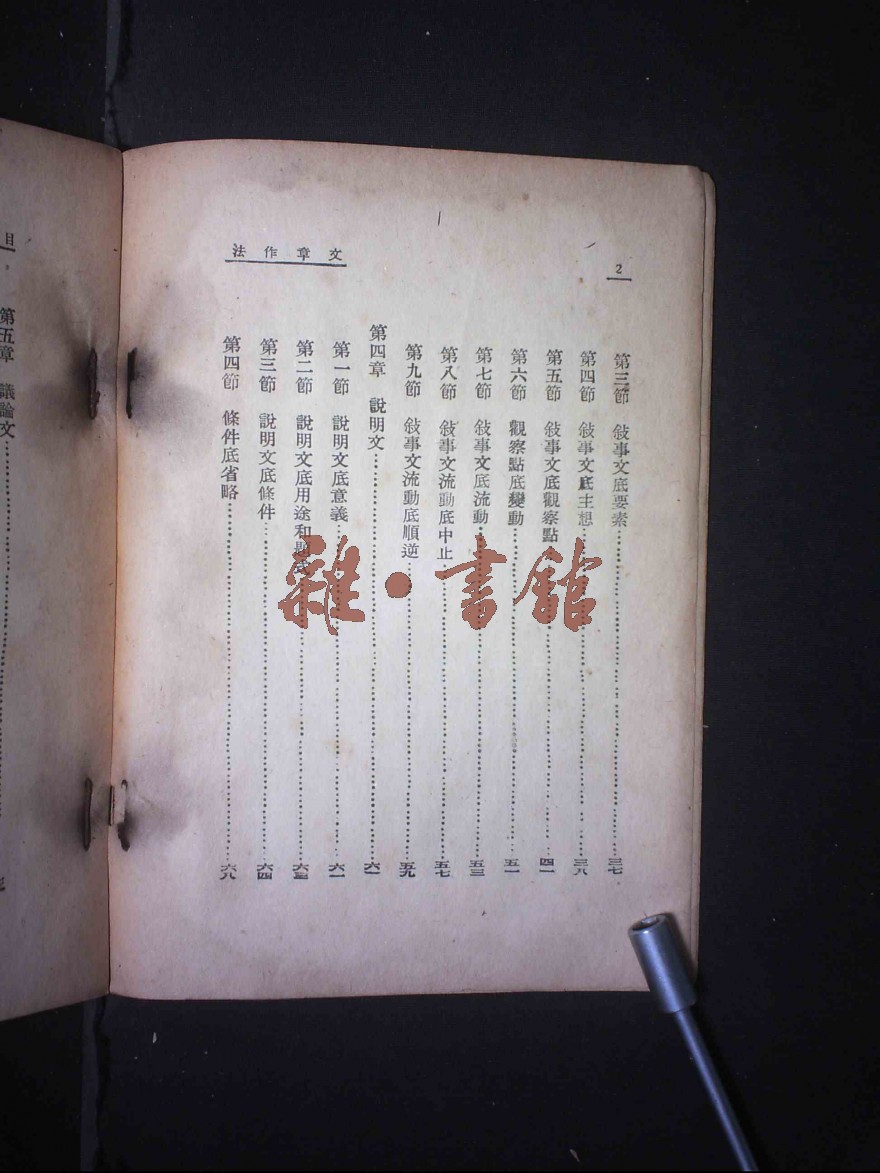 文章作法
2
第三節 敍事文底要素 三七
第四節 敍事文底主想 三八
第五節 敍事文底觀察點 四一
第六節 觀察點底變動 五一
第七節 敍事文底流動 五三
第八節 敍事文流動底中止 五七
第九節 敍事文流動底順逆 五九
第四章 說明文 六一
第一節 說明文底意義 六一
第二節 說明文底用途和題式 六三
第三節 說明文底條件 六四
第四節 條件底省略 六八
目
第五章 議論文
雜·書館